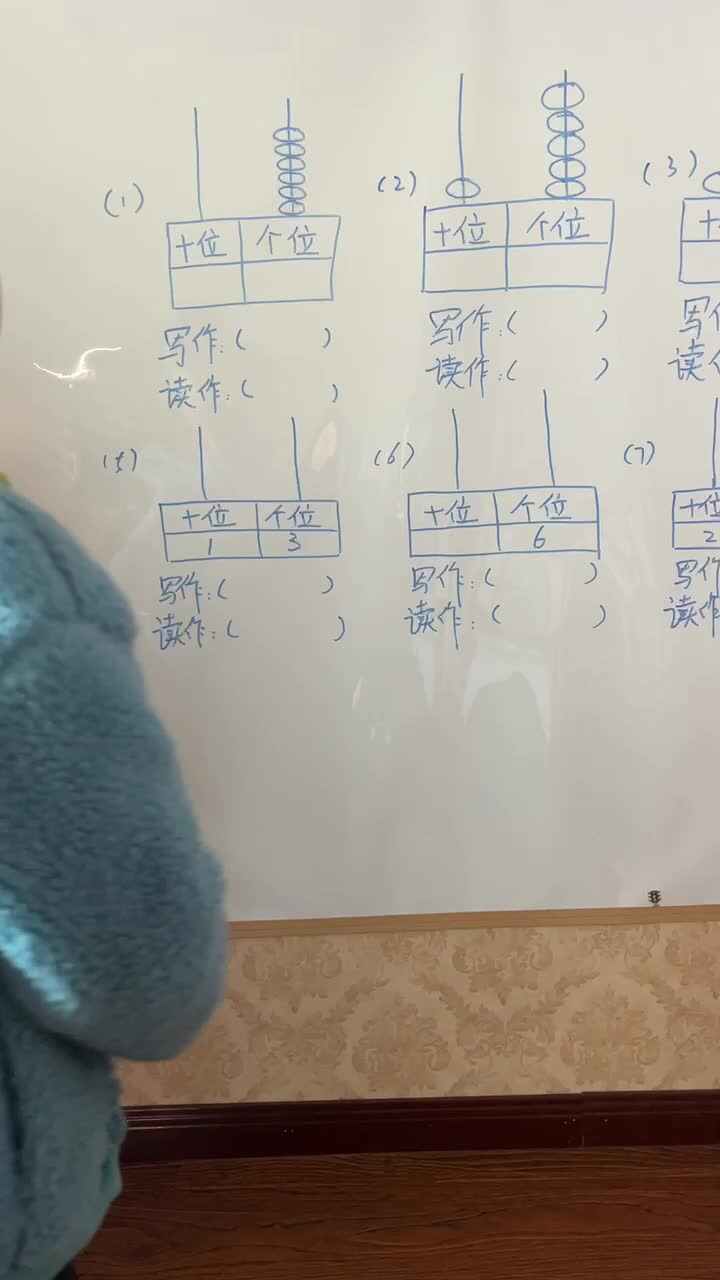 (1) (2) (3)
十位 个位 十位 个位 十
写作:( ) 写作:( ) 写作
读作:( ) 读作:( ) 读
(5) (6) (7)
十位 个位 十位 个位 十位
1 3 6 2
写作:( ) 写作:( ) 写作
读作:( ) 读作:( ) 读作